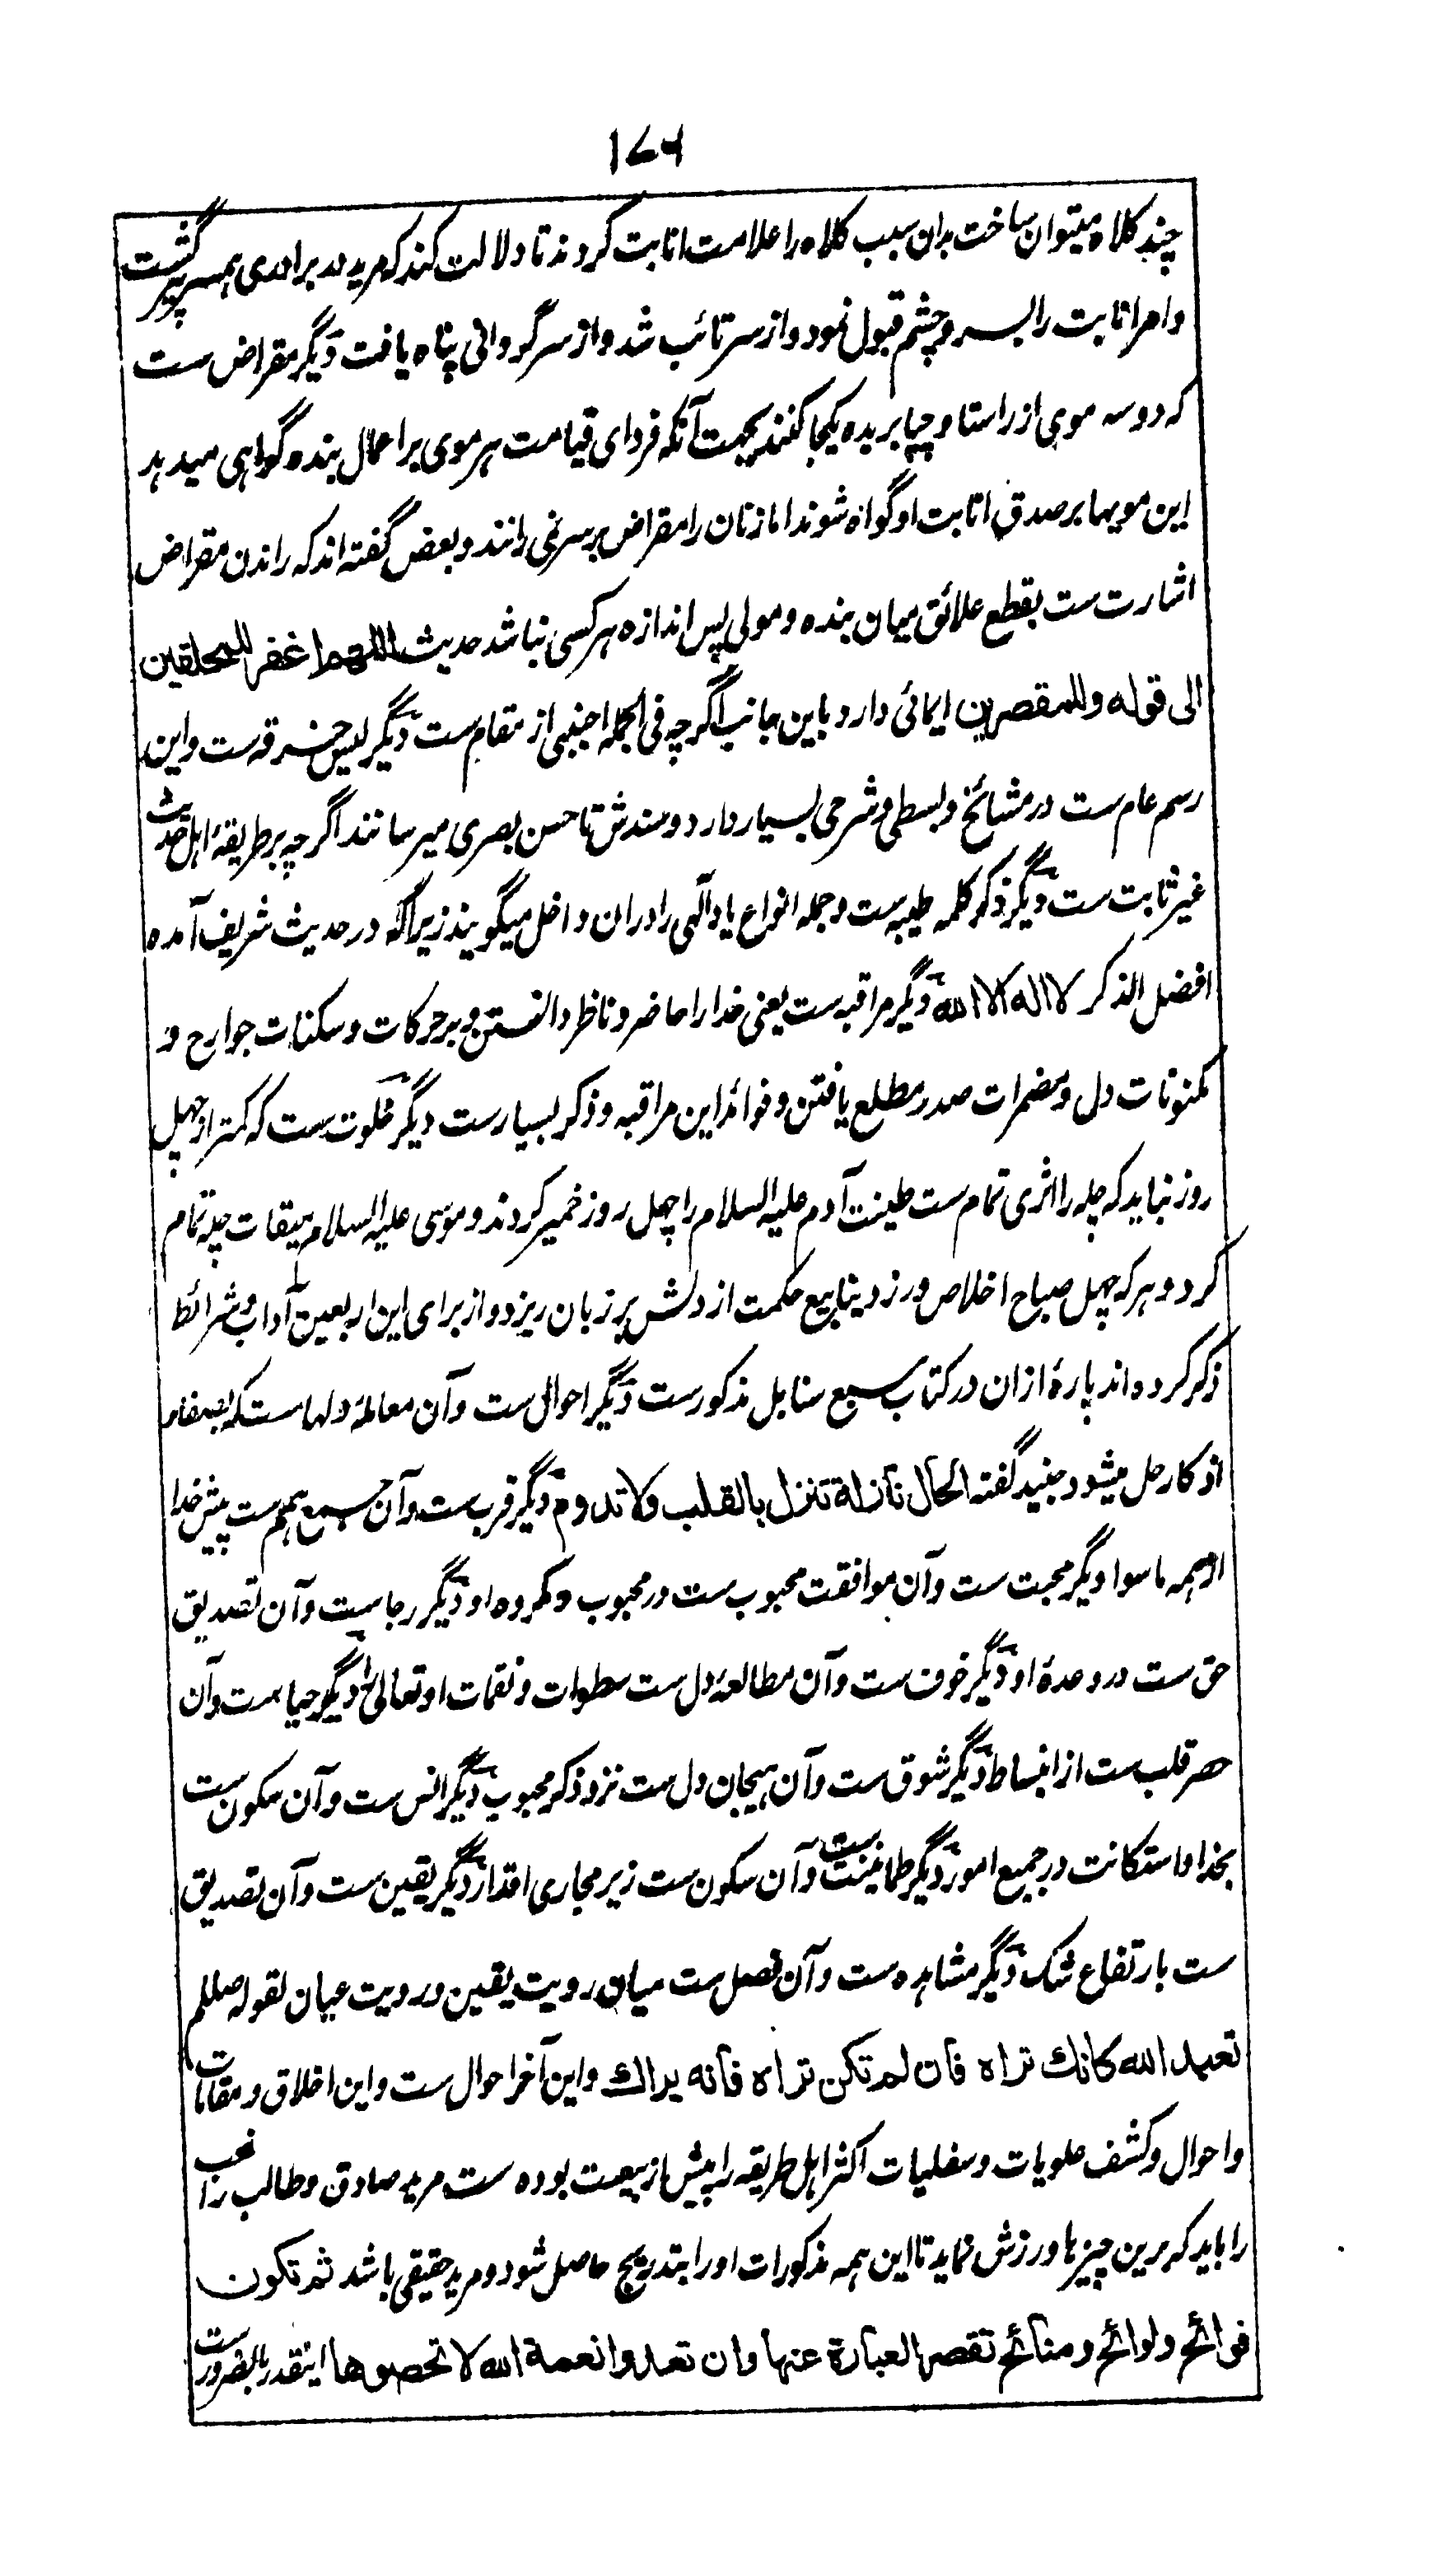 ۱۷۶
چند کلاه میتوان ساخت بدان سبب کلاه را علامت انابت کردند تا دلالت کند که مرید در برادری همسر پیر گشت
و امر انابت را بسر و چشم قبول نمود و از سر تائب شد و از سرگردانی پناه یافت دیگر مقراض ست
که دو سه موی از راستا و چپا بریده یکجا کنند بجهت آنکه فردای قیامت هر موی بر اعمال بنده گواهی میدهد
این مویها بر صدق انابت او گواه شوند اما زنان را مقراض بر سر نمی رانند و بعض گفته اند که راندن مقراض
اشارت ست بقطع علائق میان بنده و مولی پس اندازه هر کسی نباشد حدیث اللهم اغفر للمحلقین
الی قوله وللمقصرین ایمائی دارد باین جانب اگرچه فی الجمله اجنبی از مقام ست دیگر لبس خرقه ست و این
رسم عام ست در مشائخ و بسطی و شرحی بسیار دارد و سندش تا حسن بصری میرسانند اگرچه بر طریقهٔ اهل حدیث
غیر ثابت ست دیگر ذکر کلمه طیبه ست و جمله انواع یاد الهی را دران داخل میگویند زیراکه در حدیث شریف آمده
افضل الذکر لا اله الا الله دیگر مراقبه ست یعنی خدا را حاضر و ناظر دانستن و بر حرکات و سکنات جوارح و
مکنونات دل و مضمرات صدر مطلع یافتن و فوائد این مراقبه و ذکر بسیار ست دیگر خلوت ست که کمتر از چهل
روز نباید که چله را اثری تمام ست طینت آدم علیه السلام را چهل روز خمیر کردند و موسی علیه السلام میقات چله تمام
کرد و هرکه چهل صباح اخلاص ورزد ینابیع حکمت از دلش بر زبان ریزد و از برای این اربعین آداب و شرائط
ذکر کرده اند پارهٔ ازان در کتاب سبع سنابل مذکور ست دیگر احوال ست و آن معاملهٔ دلها ست که بصفاء
اذکار حل میشود جنید گفته الحال نازلة تنزل بالقلب ولا تدوم دیگر قرب ست و آن جمع هم ست پیش خدا
از همه ماسوا دیگر محبت ست و آن موافقت محبوب ست در محبوب و مکروه او دیگر رجا ست و آن تصدیق
حق ست در وعدهٔ او دیگر خوف ست و آن مطالعهٔ دل ست سطوات و نقمات او تعالی را دیگر حیا ست و آن
حصر قلب ست از انبساط دیگر شوق ست و آن هیجان دل ست نزد ذکر محبوب دیگر انس ست و آن سکون ست
بخدا و استکانت در جمیع امور دیگر طمانینت ست و آن سکون ست زیر مجاری اقدار دیگر یقین ست و آن تصدیق
ست بارتفاع شک دیگر مشاهده ست و آن فصل ست میان رویت یقین و رویت عیان لقوله صللم
تعبد الله کانك تراه فان لم تکن تراه فانه یراك و این آخر احوال ست و این اخلاق و مقامات
و احوال و کشف علویات و سفلیات اکثر اهل طریقه را پیش از بیعت بوده ست مرید صادق و طالب راغب
را باید که برین چیزها ورزش نماید تا این همه مذکورات او را بتدریج حاصل شود و مرید حقیقی باشد ثم تکون
فوائح و لوائح و منائح تقصر العبارة عنها وان تعدوا نعمة الله لا تحصوها اینقدر بالضرور ست